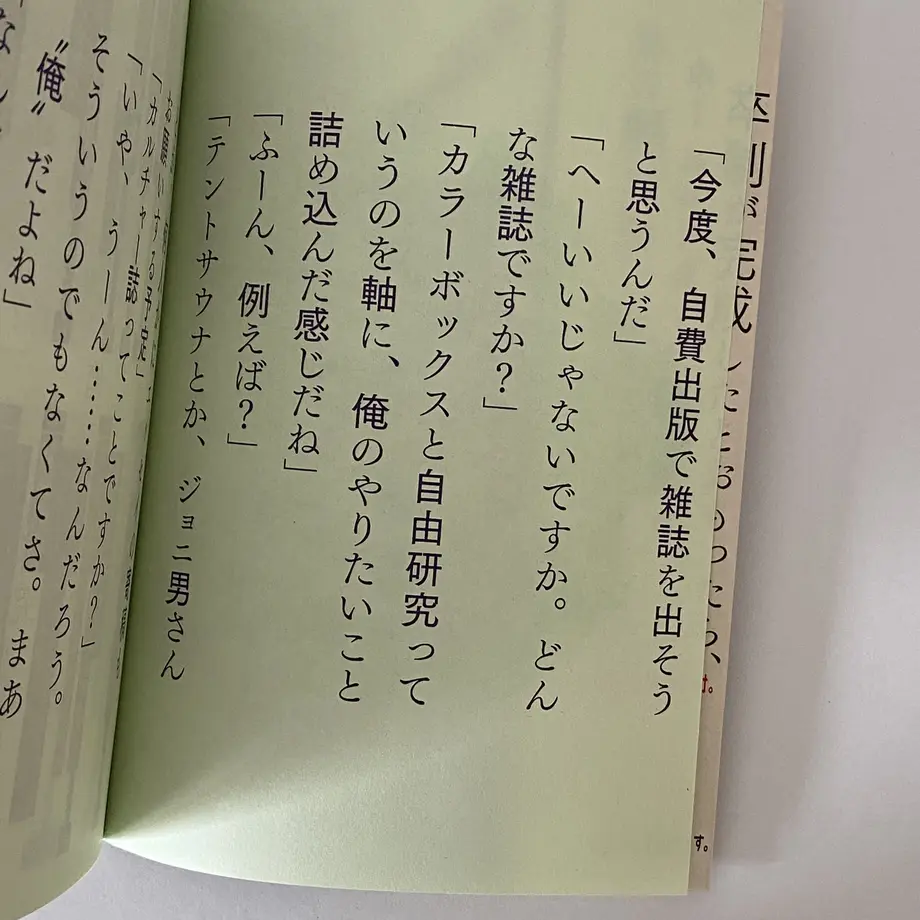 「今度、自費出版で雑誌を出そう
と思うんだ」
「へーいいじゃないですか。どん
な雑誌ですか?」
「カラーボックスと自由研究って
いうのを軸に、俺のやりたいこと
詰め込んだ感じだね」
「ふーん、例えば?」
「テントサウナとか、ジョニ男さん
お願いする予定」
「カルチャー誌ってことですか?」
「いや、うーん……なんだろう。
そういうのでもなくてさ。まあ
“俺”だよね」